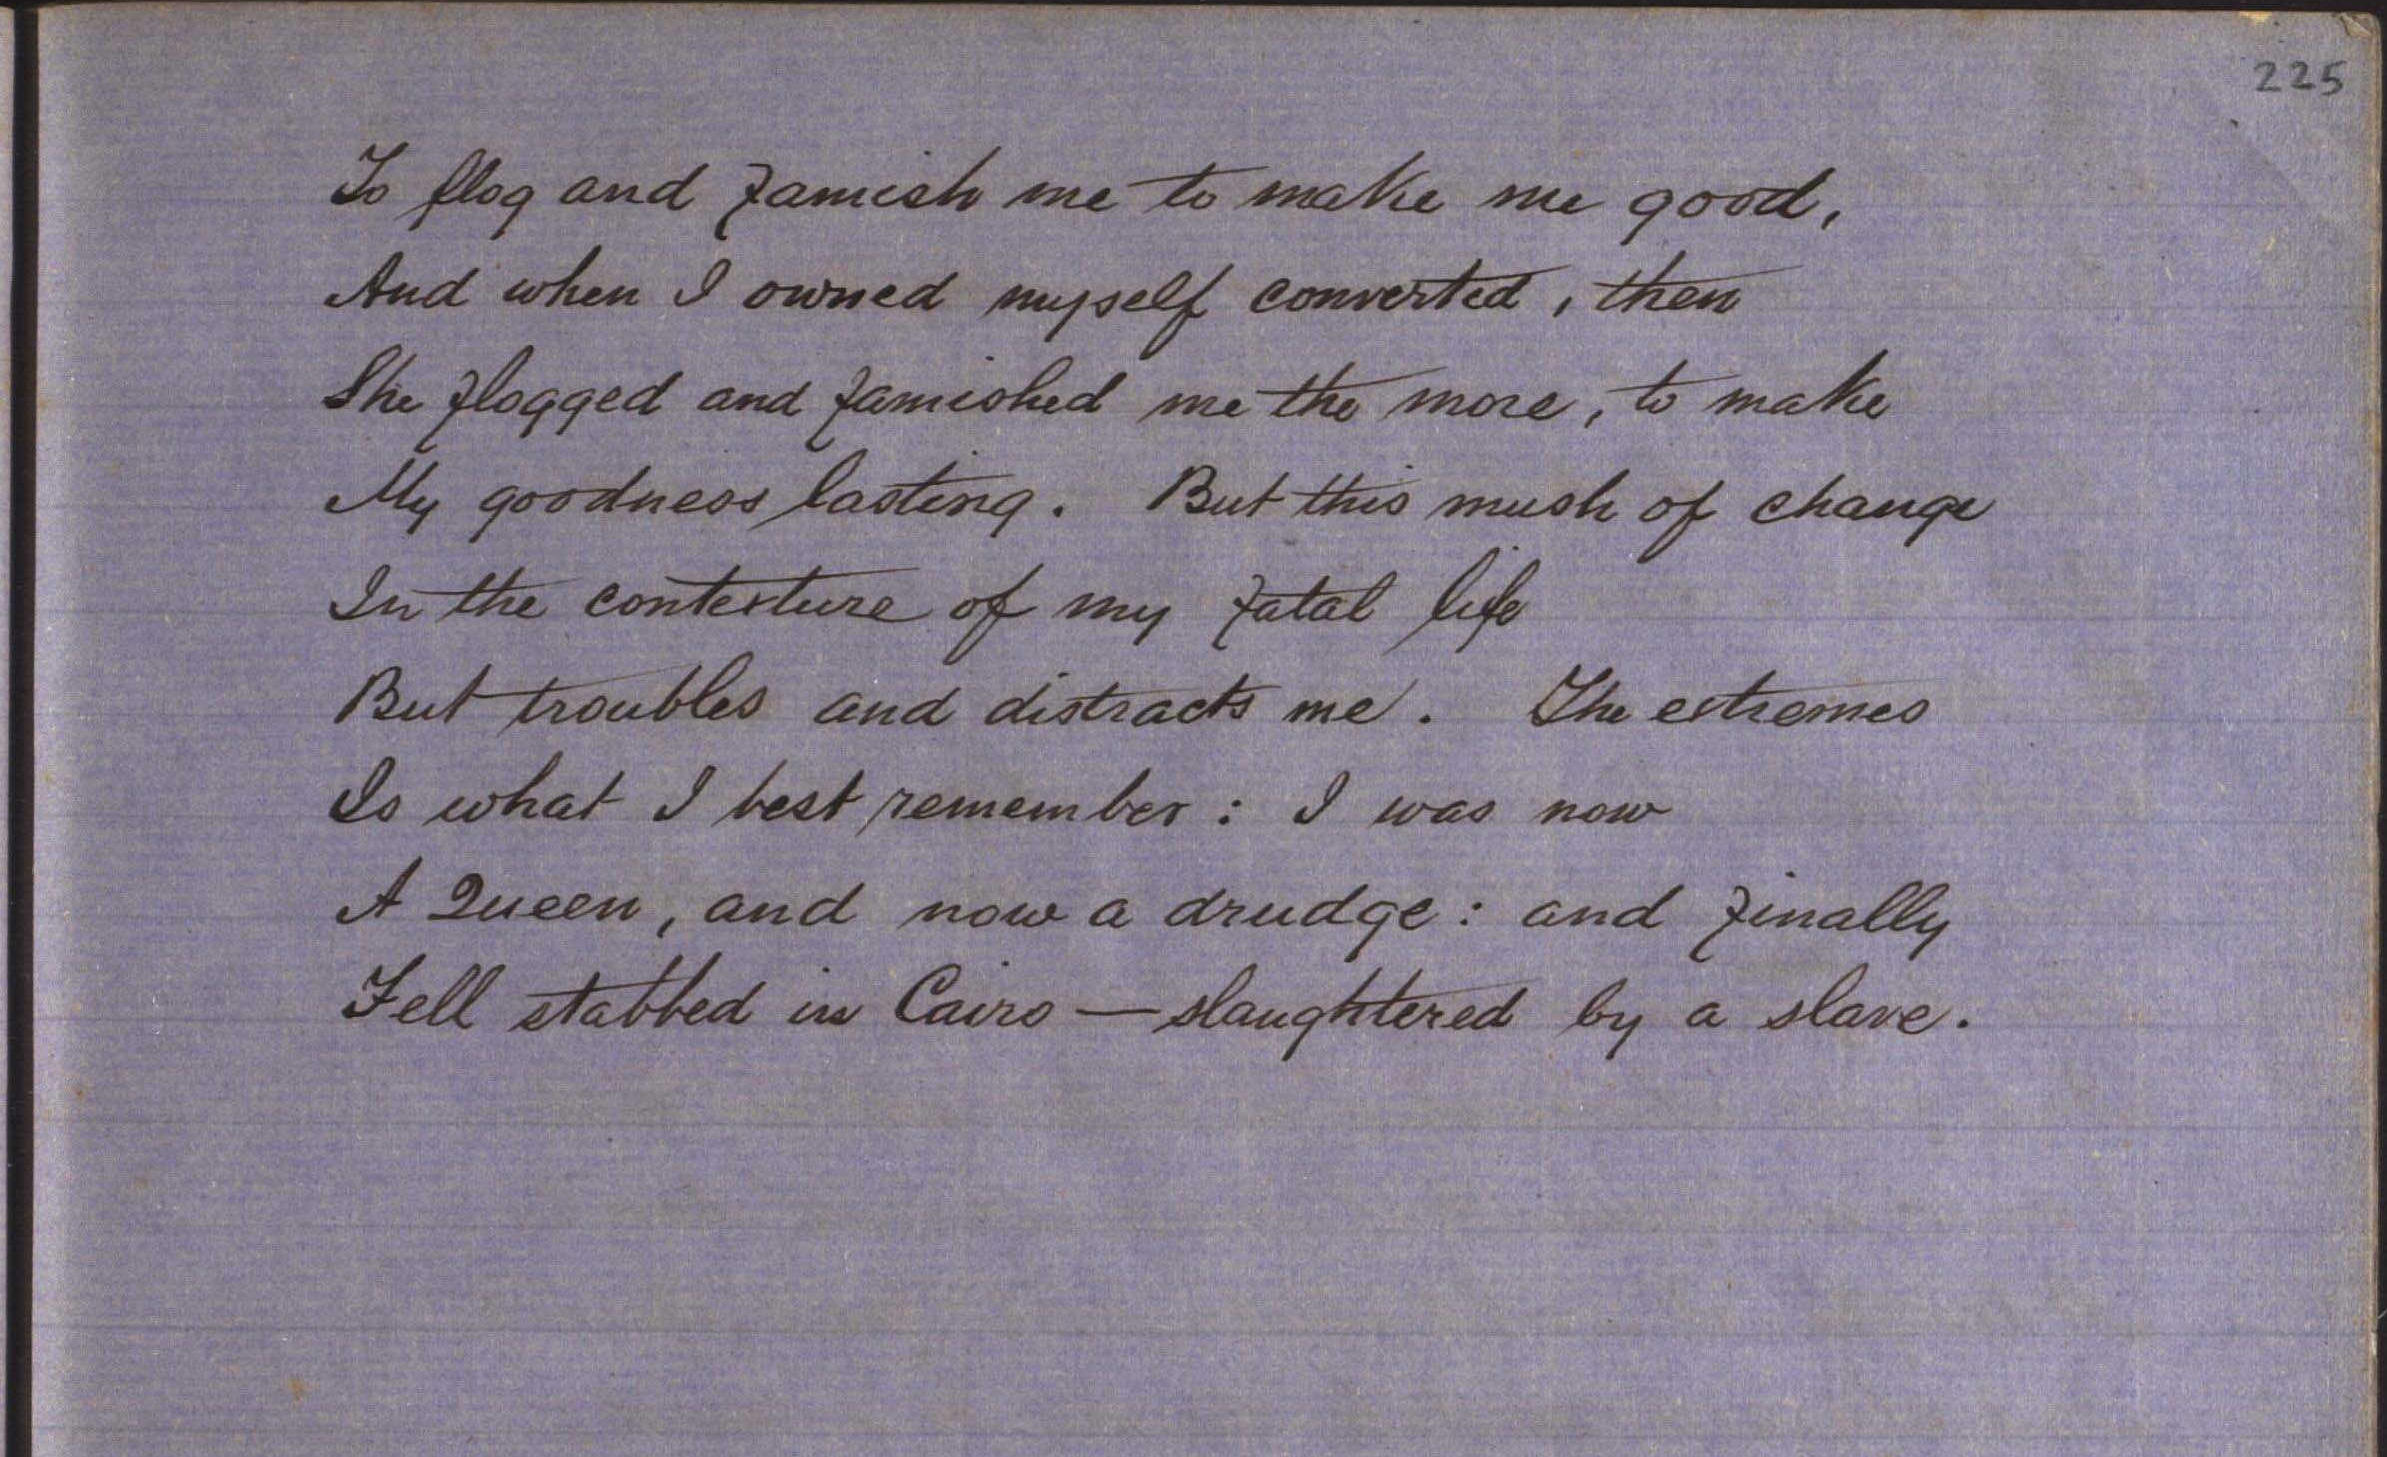 225
To flog and famish me to make me good,
And when I owned myself converted, then
She flogged and famished me the more, to make
My goodness lasting. But this mush of change
In the contexture of my fatal life
But troubles and distracts me. The extremes
Is what I best remember: I was now
A Queen, and now a drudge: and finally
Fell stabbed in Cairo — slaughtered by a slave.